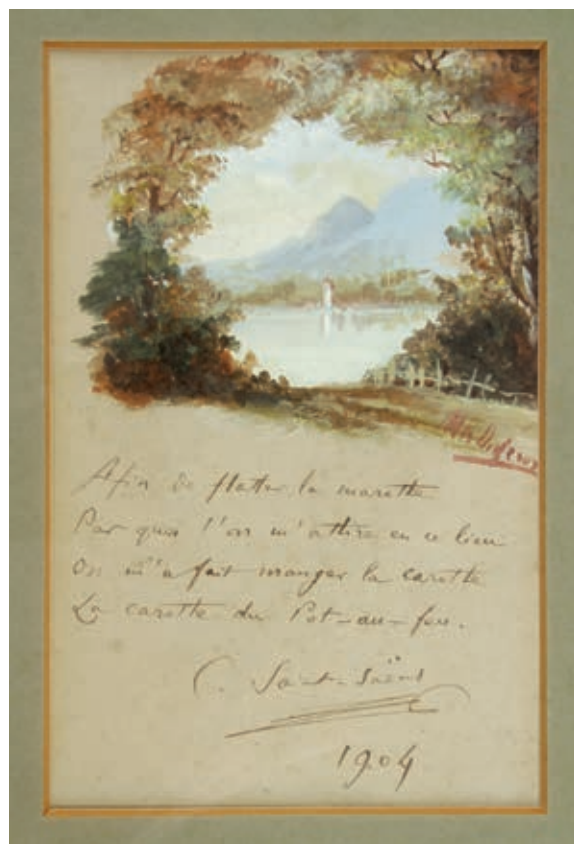 Afin de flatter la marotte
Par quoi l'on m'attire en ce lieu
On m'a fait manger la carotte
La carotte du Pot-au-feu.
C. Saint-Saëns
1904